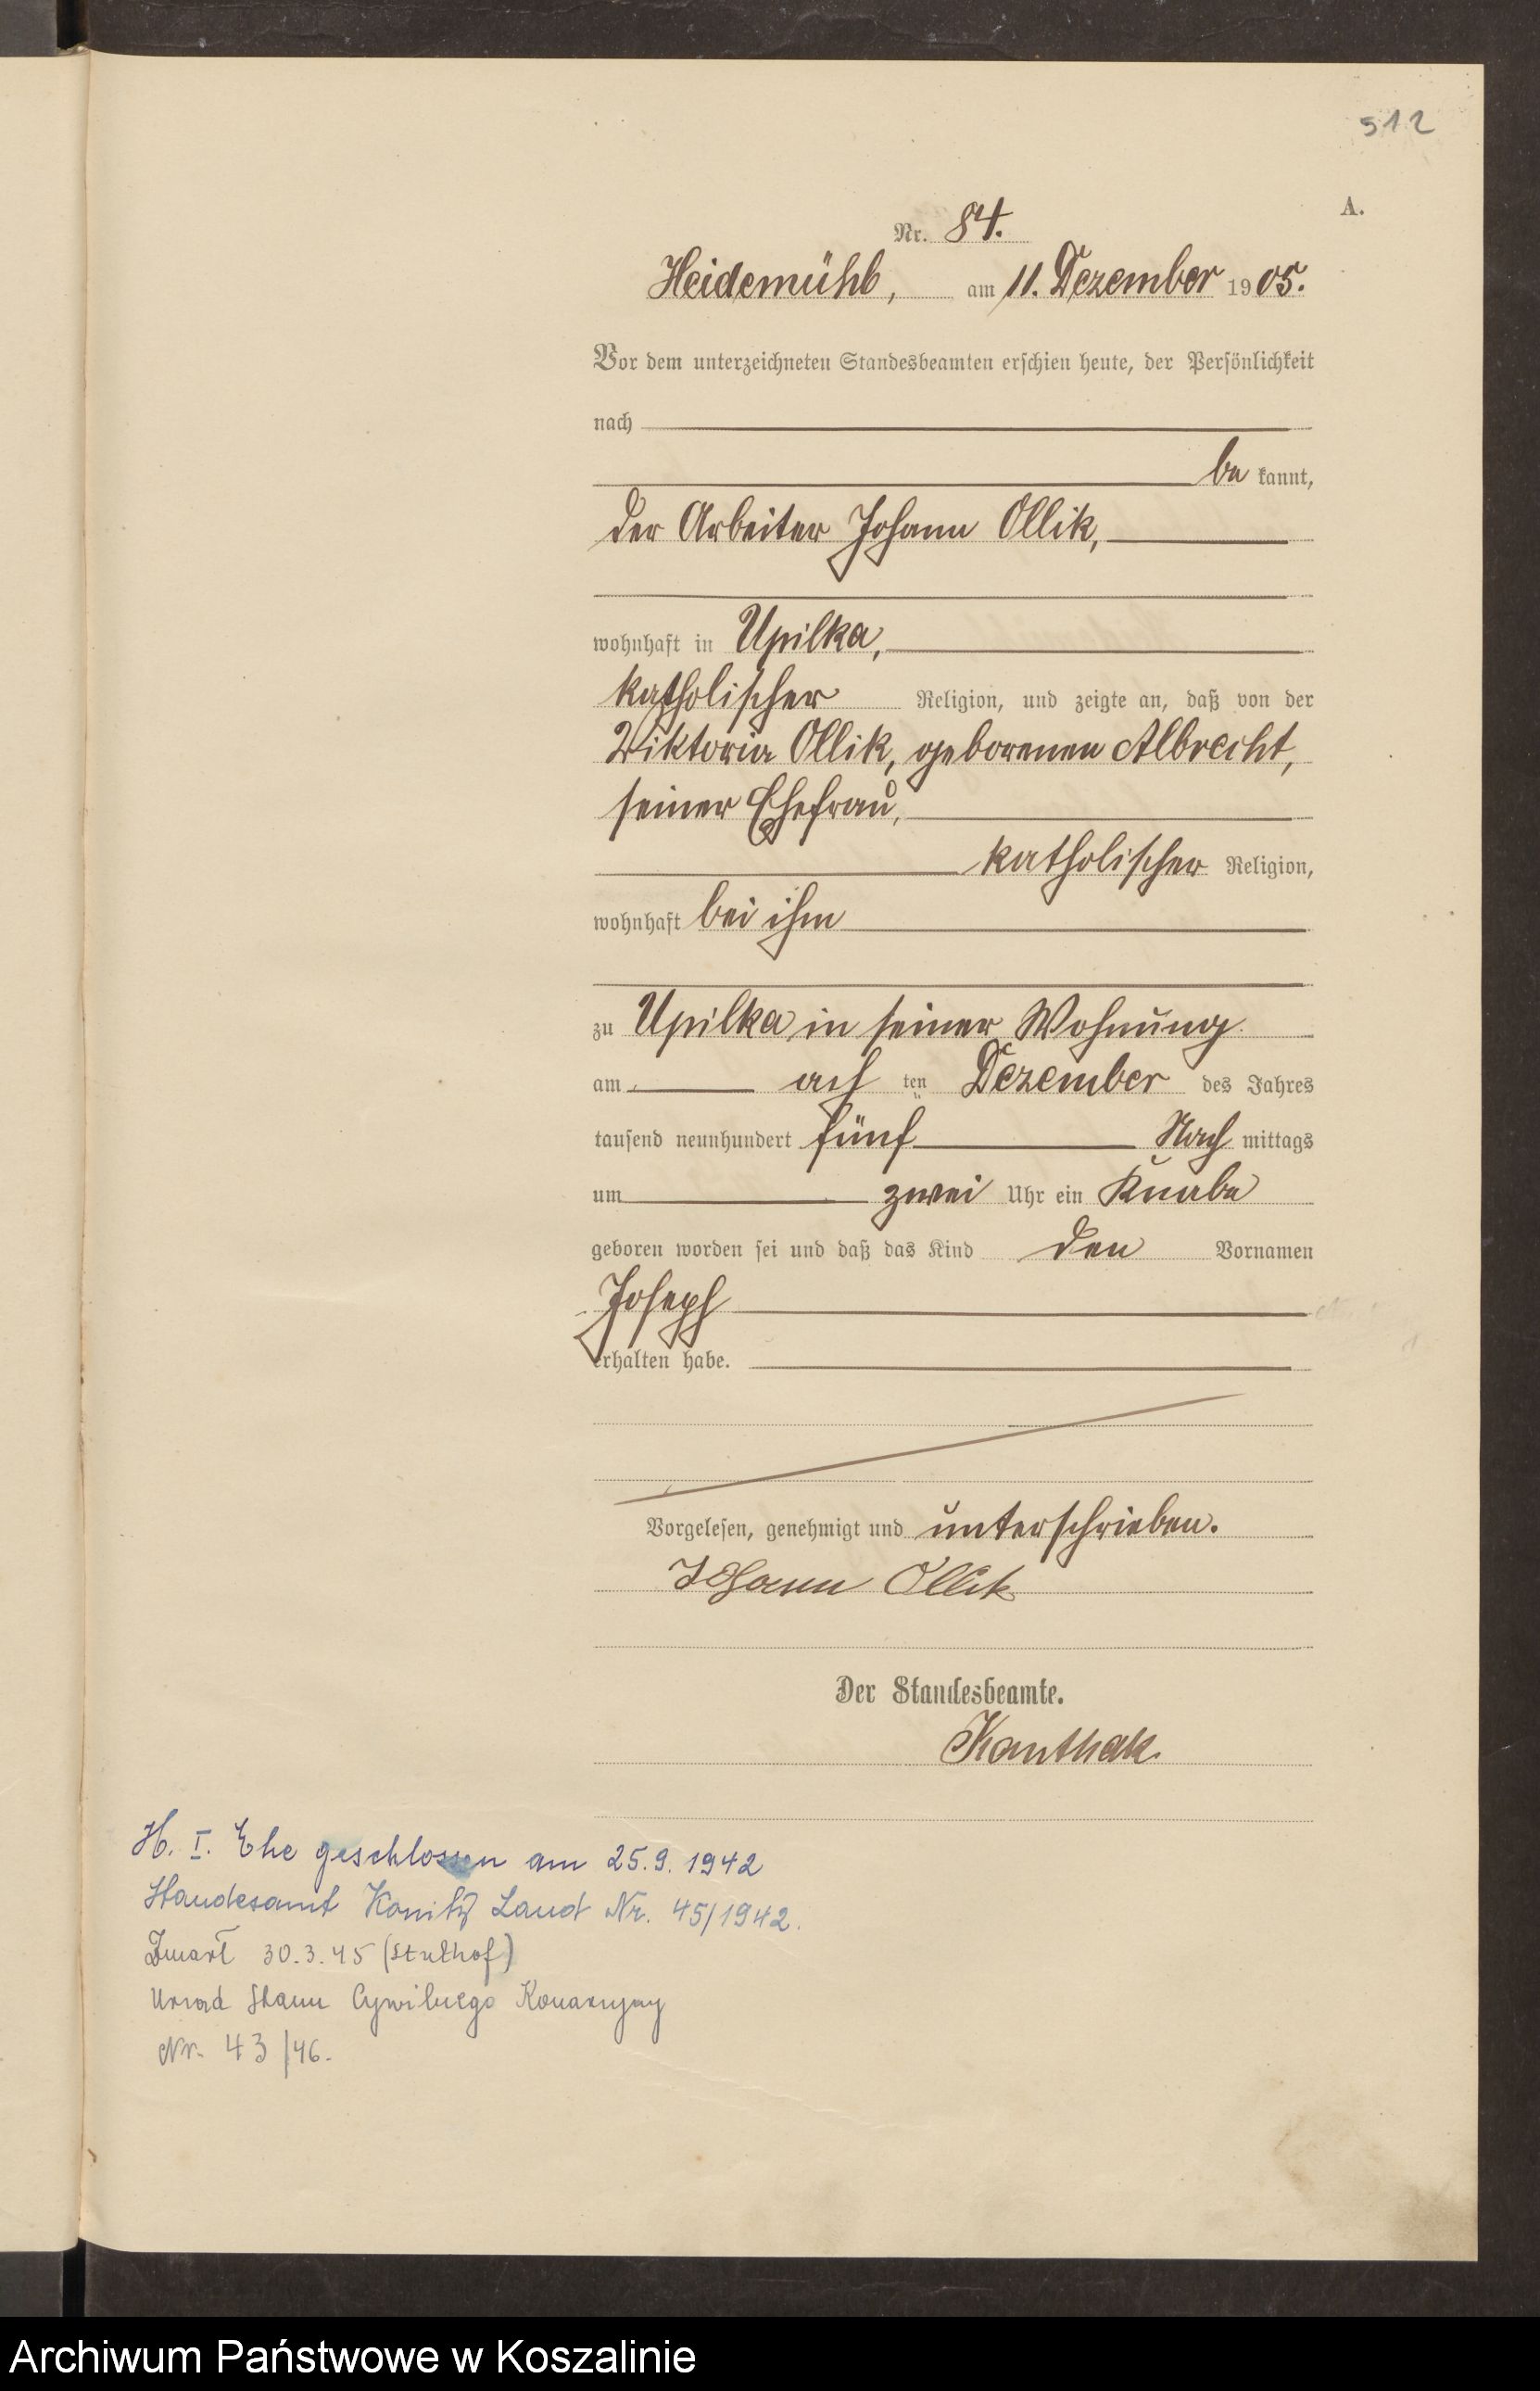 512
A.
Nr. 84.
Heidemühl, am 11. Dezember 1905.
Vor dem unterzeichneten Standesbeamten erschien heute, der Persönlichkeit
nach
be kannt,
der Arbeiter Johann Ollik,
wohnhaft in Upilka,
katholischer Religion, und zeigte an, daß von der
Viktoria Ollik, geborenen Albrecht,
seiner Ehefrau,
katholischer Religion,
wohnhaft bei ihm
zu Upilka in seiner Wohnung
am ach ten Dezember des Jahres
tausend neunhundert fünf Nach mittags
um zwei Uhr ein Knabe
geboren worden sei und daß das Kind den Vornamen
Joseph
erhalten habe.
Vorgelesen, genehmigt und unterschrieben.
Johann Ollik
Der Standesbeamte.
Kanthak
H. I. Ehe geschlossen am 25.9.1942
Standesamt Konitz Land Nr. 45/1942.
Zmarł 30.3.45 (Stuthof)
Urząd Stanu Cywilnego Konarzyny
Nr. 43/46.
Archiwum Państwowe w Koszalinie